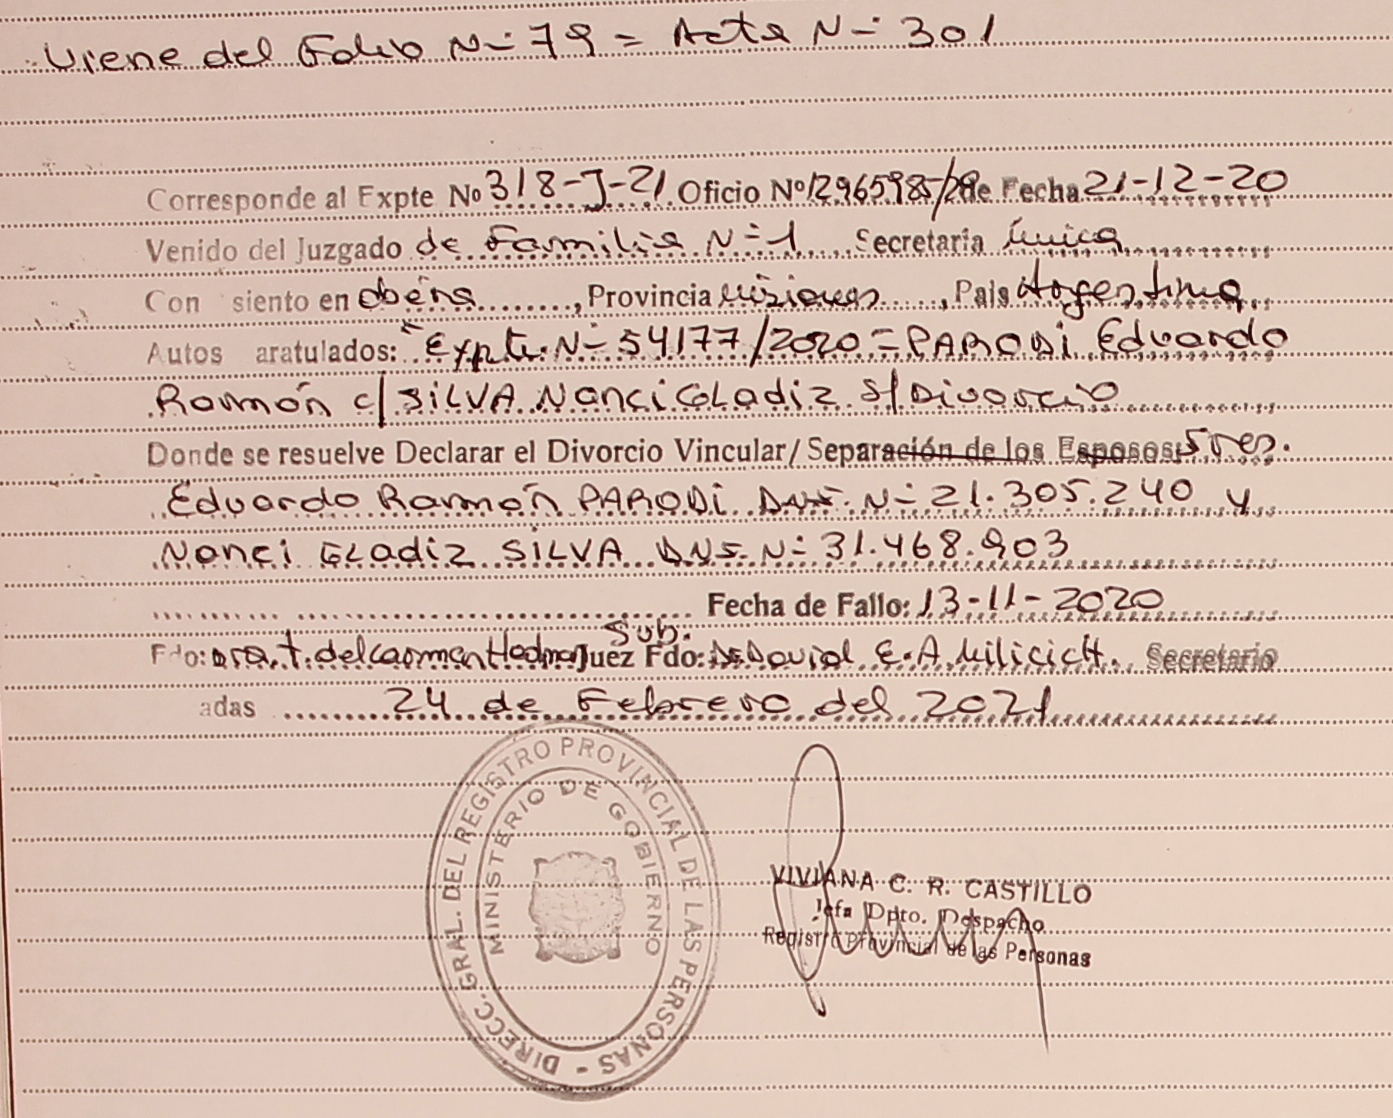 Viene del Folio N- 79 = Acta N- 301
Corresponde al Expte No 318-J-21 Oficio Nº 1296598/20 de Fecha 21-12-20
Venido del Juzgado de Familia N-1 Secretaria Única
Con siento en Oberá, Provincia Misiones, Pais Argentina
Autos aratulados: "Expte. N- 54177/2020 = PARODi Eduardo
Ramón c/ SiLVA Nanci GLadiz s/ Divorcio
Donde se resuelve Declarar el Divorcio Vincular/ Separación de los Esposos: Sres.
Eduardo Ramón PARODi DNI. N- 21.305.240 y
Nanci GLadiz SiLVA DNI. N- 31.468.903
Fecha de Fallo: 13-11-2020
Sub.
Fdo: Dra. t. del carmen Juez Fdo: David E. A. Milicich. Secretario
adas 24 de Febrero del 2021
DIRECC. GRAL. DEL REGISTRO PROVINCIAL DE LAS PERSONAS -
MINISTERIO DE GOBIERNO
VIVIANA C. R. CASTILLO
Jefa Dpto. Despacho
Registro Provincial de las Personas